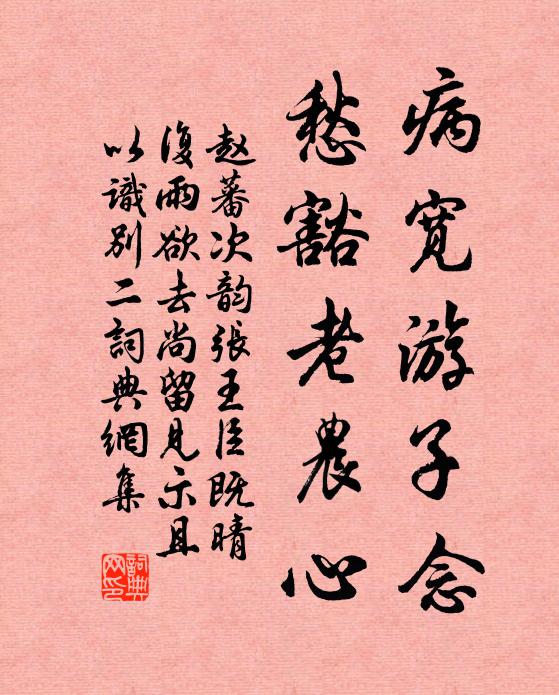 病宽游子念
愁豁老農心
赵蕃次韵張王臣既晴
復雨欲去尚留見示且
以識别二詞典網集
詞典網印